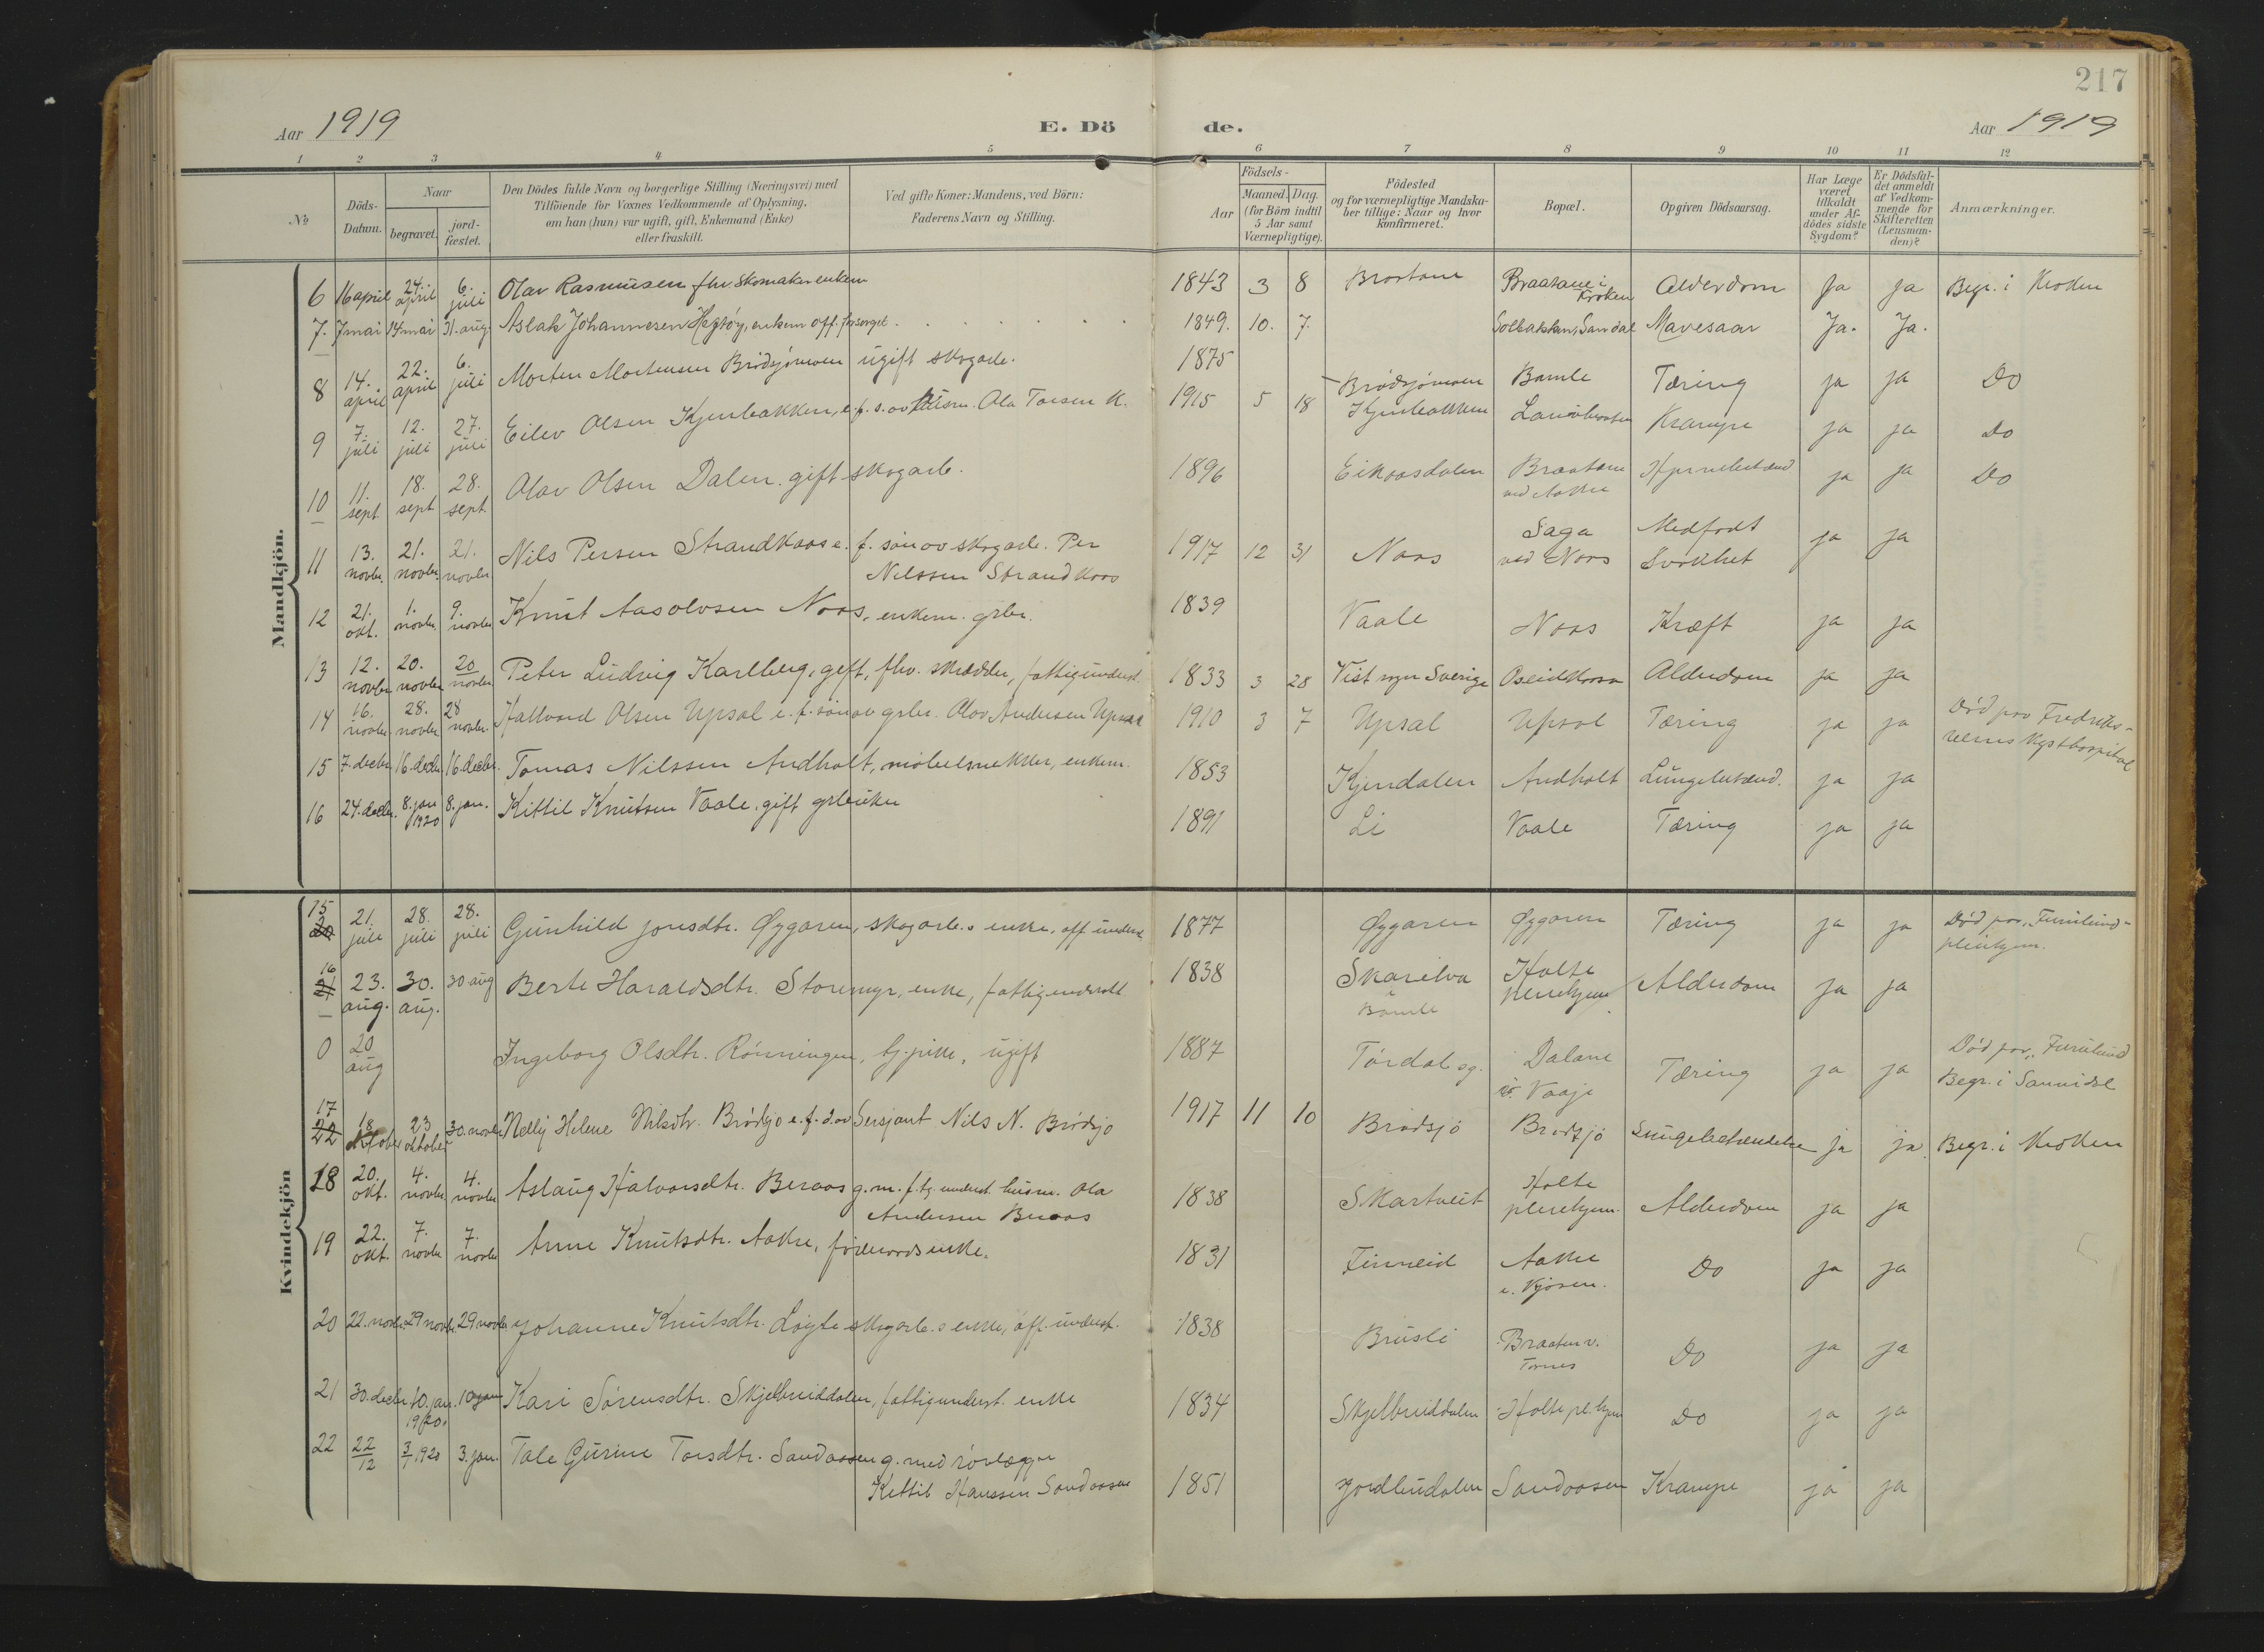 217
Aar 1919
E. Dö
de.
Aar 1919
1 2 3 4 5 6 7 8 9 10 11 12
No
Döds-Datum.
Naar
begravet.
jord-fæstet.
Den Dödes fulde Navn og borgerlige Stilling (Næringsvei) med
Tilföiende for Voxnes Vedkommende af Oplysning,
om han (hun) var ugift, gift, Enkemand (Enke)
eller fraskilt.
Ved gifte Koner: Mandens, ved Börn:
Faderens Navn og Stilling.
Födsels-
Aar
Maaned. Dag.
(for Börn indtil
5 Aar samt
Værnepligtige).
Födested
og for værnepligtige Mandska-
ber tillige: Naar og hvor
konfirmeret.
Bopæl.
Opgiven Dödsaarsag.
Har Læge
været
tilkaldt
under Af-
dödes sidste
Sygdom?
Er Dödsfal-
det anmeldt
af Vedkom-
mende for
Skifteretten
(Lensman-
den)?
Anmærkninger.
Mandkjön.
6 16 april 24. april 6. juli Olav Rasmusen fhv. skomaker enkem 1843 3 8 Braatane i Kroken Alderdom Ja ja Begr. i Kroken
7. 7 mai 14 mai 31. aug. Aslak Johannesen Hegtøy, enkem off. forsørget. 1849. 10. 7. Solbakken, Sandal Mavesaar Ja. Ja.
8 14. april 22. april 6. juli Morten Mortensen Brödsjömoen ugift skogarb. 1875 Brödsjömoen Bamle Tæring ja ja Do
9 7. juli 12. juli 27. juli Eilev Olsen Kjenbakken, e. f. s. av husm. Ola Torsen K. 1915 5 18 Kjenbakken Krampe ja ja Do
10 11. sept. 18. sept 28. sept. Olav Olsen Dalen. gift skogarb. 1896 Eikaasdalen Braatane ved Aakre ja ja Do
11 13. novbr. 21. novbr. 21. novbr Nils Persen Strandkaas e. f. sön av skogarb. Per
Nilssen Strandkaas 1917 12 31 Naas Saga ved Naas Medfödt Svakhet ja ja
12 21. okt. 1. novbr. 9. novbr Knut Aasolvsen Naas, enkem. grbr. 1839 Vaale Naas Kræft ja ja
13 12. novbr 20. novbr 20 novbr Peter Ludvig Karlberg, gift, fhv. skrædder, fattigunderst. 1833 3 28 Sverige Alderdom ja ja
14 16. novbr 28. novbr 28 novbr. Hallvard Olsen Upsal e. f. sön av grbr. Olav Andersen Upsal 1910 3 7 Upsal Upsal Tæring ja ja Död paa Fredriks-
værns Kysthospital
15 7. decbr 16. decbr. 16. decbr. Tomas Nilssen Andholt, möbelsnekker, enkem. 1853 Kjendalen Andholt Lungebetænd. ja ja
16 24. decbr. 8. jan 1920 8. jan. Kittil Knutsen Vaale, gift grbruker 1891 Li Vaale Tæring ja ja
Kvindekjön
15 20 21. juli 28. juli 28. juli Gunhild Jonsdtr. Øygaren, skogarb.s enke, off. underst. 1877 Øygaren Øygaren Tæring ja ja Död paa "Furulund"
pleiehjem.
16 21 23. aug. 30. aug. 30 aug Berte Haraldsdtr. Storemyr, enke, fattigunderstt. 1838 Skarelva Bamle Holte pleiehjem Alderdom ja ja
0 20 aug Ingeborg Olsdtr. Rönningen, tj. pike, ugift 1887 Tördal sg. Dalane i Vaaje Tæring ja ja Död paa "Furulund
Begr. i Sannidal
17 22 18 oktober 23 oktober 30. novbr Nelly Helene Nilsdtr. Brödsjö e. f. d. av Sersjant Nils N. Brödsjö 1917 11 10 Brödsjö Brödsjö Lungebetændelse ja ja Begr. i Kroken
18 20. okt. 4. novbr 4. novbr Aslaug Halvorsdtr. Beraas g. m. f.tg. underst. husm. Ola
Andersen Beraas 1838 Skartveit Holte pleiehjem Alderdom ja ja
19 22. okt. 7. novbr 7. novbr Anne Knutsdtr. Aakre, föderaadsenke. 1831 Finneid Aakre i. Kjosen. Do ja ja
20 22. novbr. 29 novbr. 29 novbr Johanne Knutsdtr. Löyte skogarb.s enke, off. underst. 1838 Brusli Braaten v. Tornes Do ja ja
21 30. decbr. 10. jan. 1920. 10 jan Kari Sörensdtr. Skjelbreiddalen, fattigunderst. enke 1834 Skjelbreiddalen Holte pl. hjem Do ja ja
22 22/12 3/1 1920 3. jan. Tale Gurine Torsdtr. Sandaasen g. med rörlægger
Kittil Hanssen Sandaasen 1851 Sandaasen Krampe ja ja